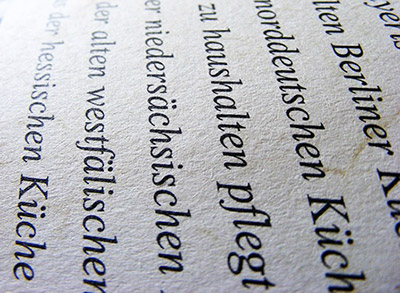 yerns
lten Berliner Kü
norddeutschen Küch
zu haushalten pflegt
er niedersächsischen
der alten westfälischen
der hessischen Küche